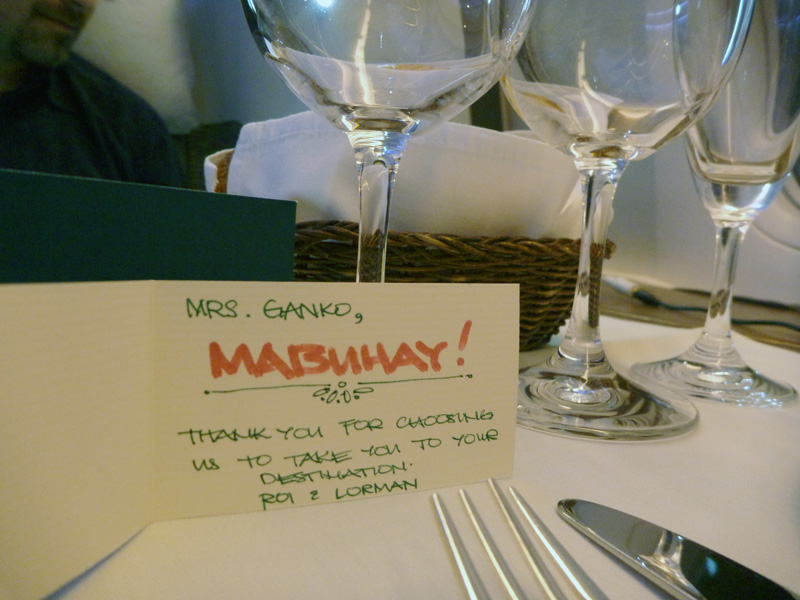 MRS. GANKO,
MABUHAY!
THANK YOU FOR CHOOSING
US TO TAKE YOU TO YOUR
DESTINATION.
ROI & LORMAN